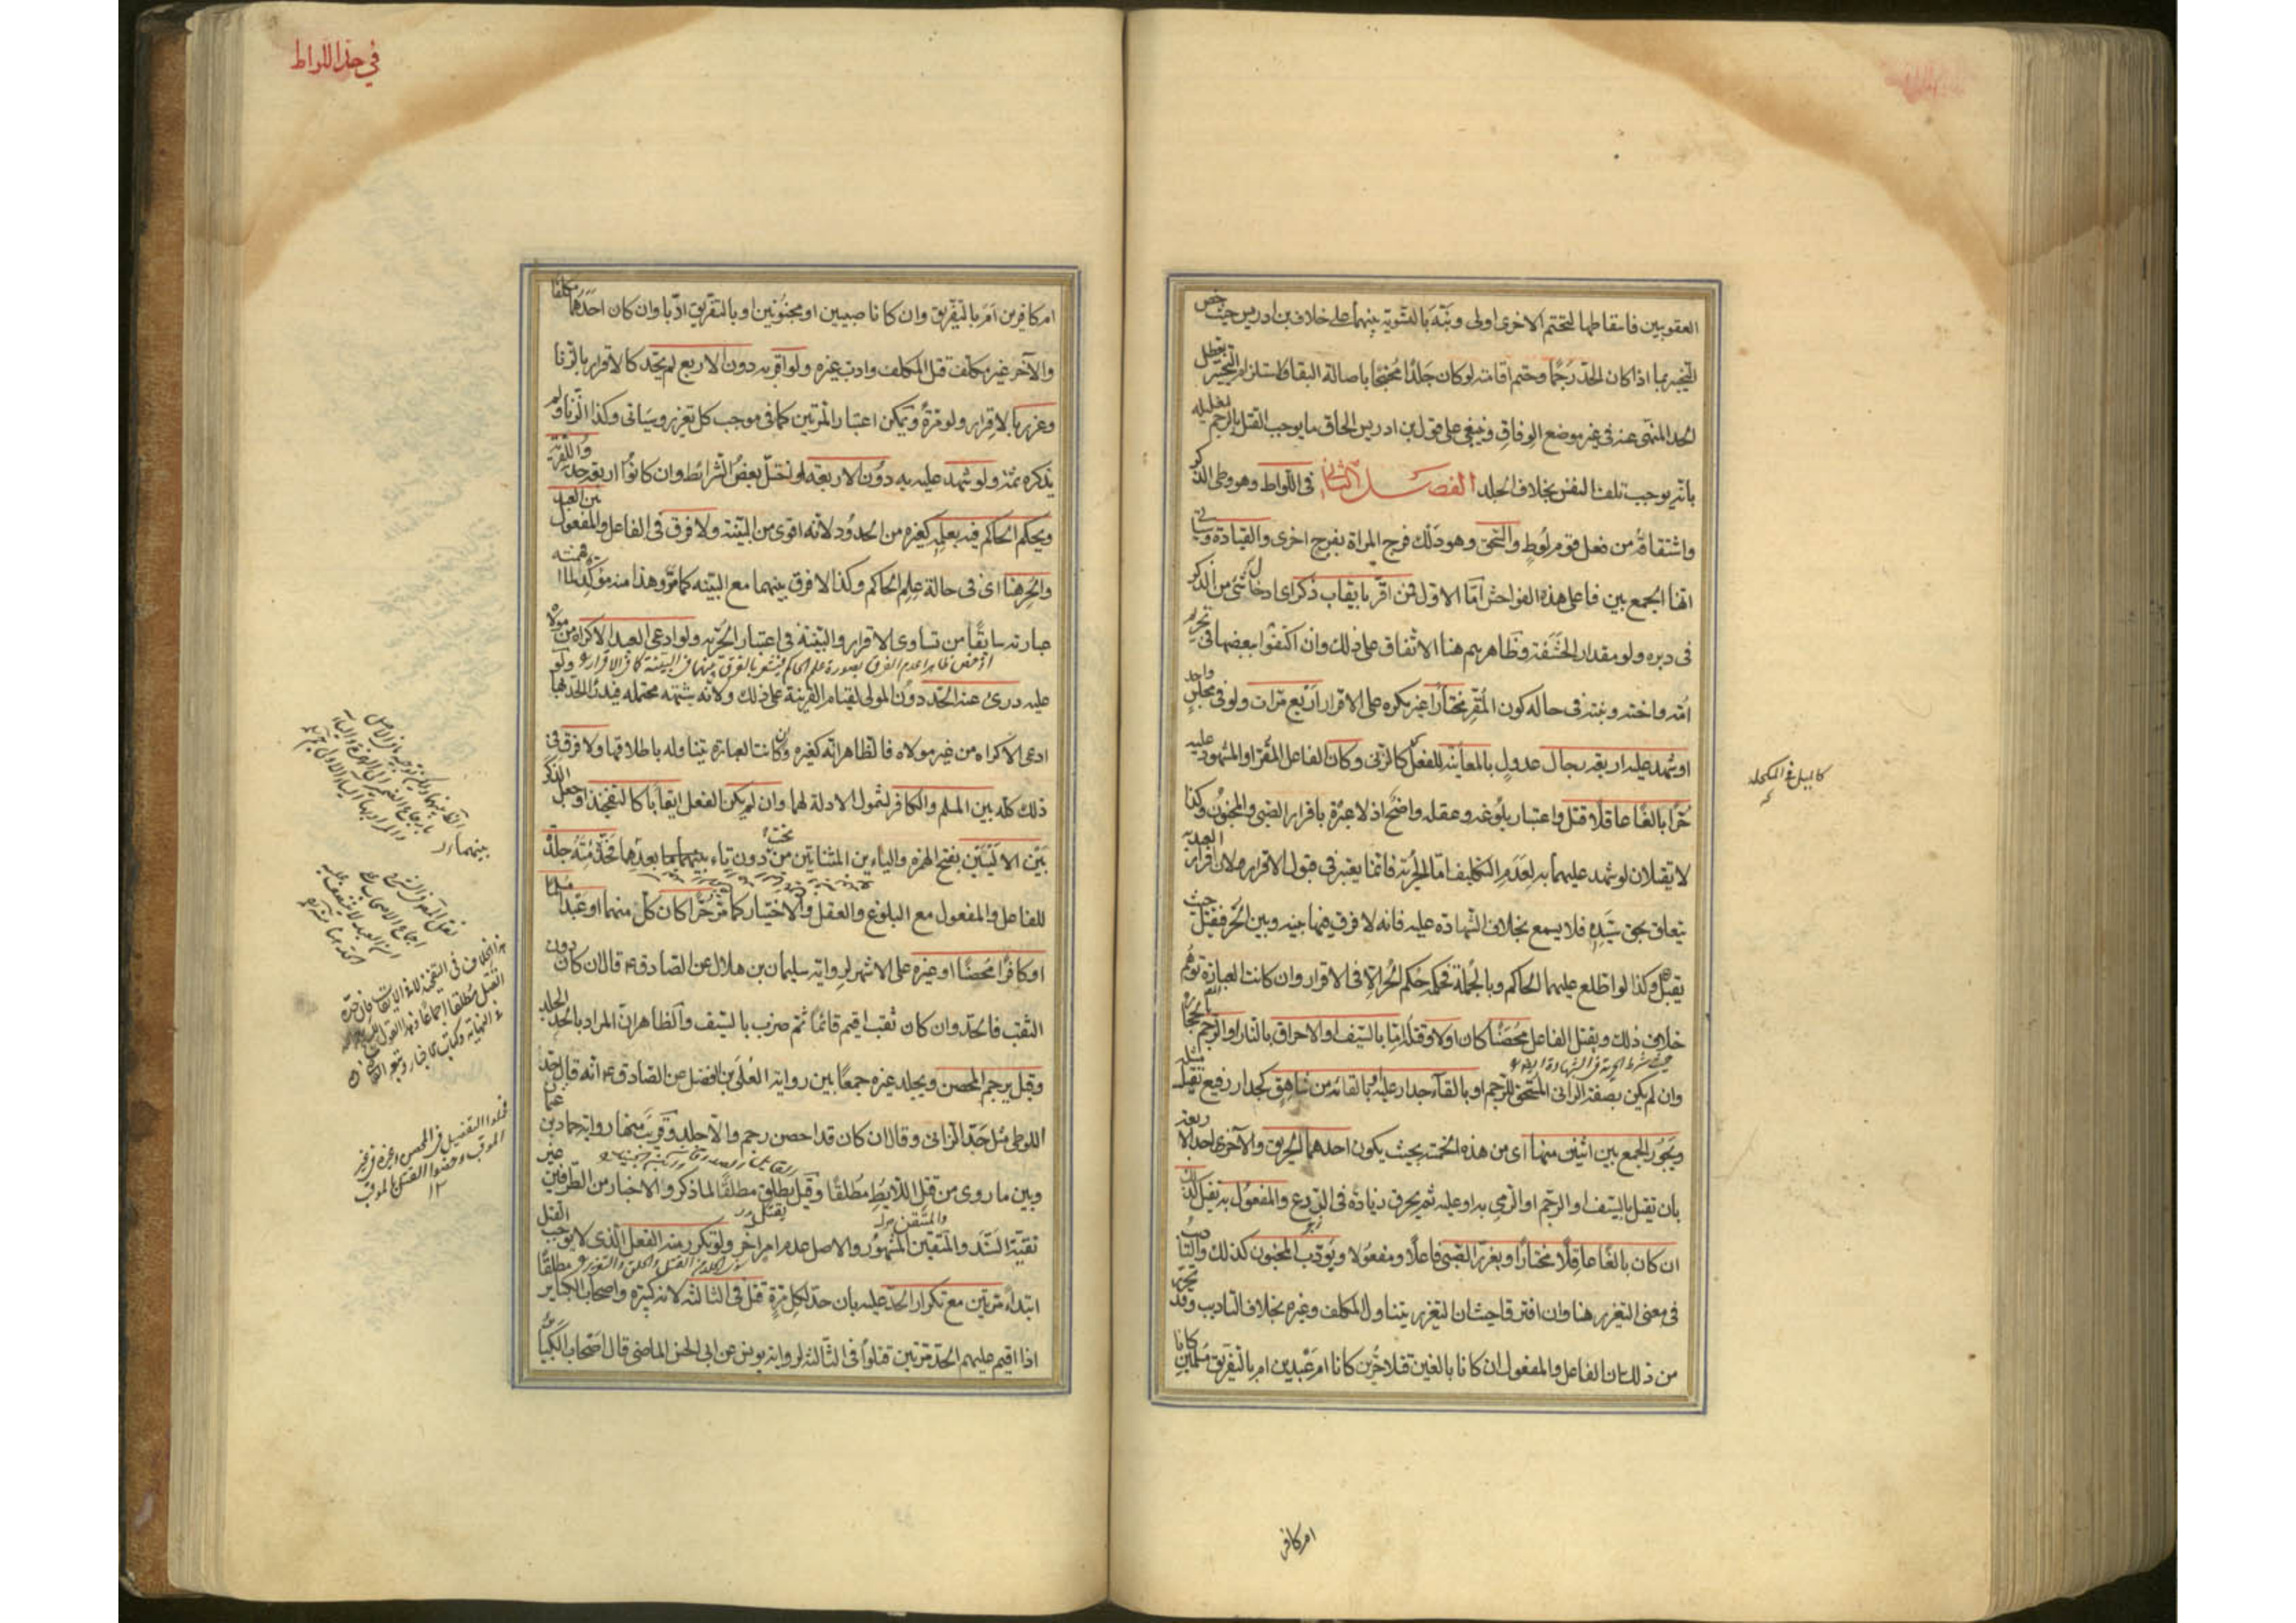 العقوبتين فاسقاطها لتحتم الاخرى اولى ونبّه بالتسوية بينهما على خلاف بن ادريس حيث خصّ
التخيير بما اذا كان الحدّ رجمًا وحتم اقامته لو كان جلدًا محتجّا باصالة البقا واستلزام التخيير تعطيل
الحد المنهى عنه فى غير موضع الوفاق وينبغى على قول بن ادريس الحاق ما يوجب القتل بالرجم لتعليله
بانّه يوجب تلف النفس بخلاف الجلد الفصل الثانى فى اللواط وهو وطى الذكر
واشتقاقه من فعل قوم لوطٍ والسحق وهو دلك فرج المراة بفرج اخرى والقيادة وسياتى
انّها الجمع بين فاعلى هذه الفواحش امّا الاول فمن اقرّ بايقاب ذكر اى ادخال شئ من الذكر
فى دبره ولو مقدار الحشفة وظاهرهم هنا الاتفاق على ذلك وان اكتفوا ببعضها فى تحريم
امّه واخته وبنته فى حالة كون المقر مختارًا غير مكره على الاقرار اربع مرّات ولو فى مجلسٍ واحد
او شهد عليه اربعة رجال عدول بالمعاينة للفعل كالزنى وكان الفاعل المقرّ او المشهود عليه
حرّا بالغًا عاقلًا قتل واعتبار بلوغه وعقله واضح اذ لا عبرة باقرار الصبى والمجنون وكذا
لا يقتلان لو شهد عليهما به لعدم التكليف امّا الحرّية فانّما يعتبر فى قبول الاقرار لان اقرار العبد
يتعلق بحق سيّده فلا يسمع بخلاف الشهادة عليه فانه لا فرق فيها بينه وبين الحر فيقتل حيث
يقتل وكذا لو اطلع عليهما الحاكم وبالجملة فحكمه حكم الحر الا فى الاقرار وان كانت العبارة توهم
خلاف ذلك ويقتل الفاعل محصنًا كان اولا وقتله امّا بالسيف او الاحراق بالنار او الرجم بالحجارة
وان لم يكن بصفة الزانى المستحق للرجم او بالقآء جدار عليه او بالقائه من شاهق كجدار رفيع يقتل مثله
ويجوز الجمع بين اثنين منها اى من هذه الخمسة بحيث يكون احدهما الحريق والآخر احد الاربعة
بان يقتل بالسيف او الرجم او الرمى به او عليه ثم يحرق زيادة فى الردع والمفعول به يقتل كذلك
ان كان بالغًا عاقلًا مختارًا ويعزر الصبى فاعلًا ومفعولا ويؤدّب المجنون كذلك والتاديب
فى معنى التعزير هنا وان افترقا حيث ان التعزير يتناول المكلف وغيره بخلاف التاديب وقد تحرّر
من ذلك ان الفاعل والمفعول ان كانا بالغين قتلا حرّين كانا ام عبدين ام بالتفريق مسلمين كانا
كالميل فى المكحلة
ام كافر
فى حدّ اللواط
ام كافرين ام بالتفريق وان كانا صبيين او مجنونين او بالتفريق ادّبا وان كان احدهما مكلفا
والآخر غير مكلف قتل المكلف وادب غيره ولو اقر به دون الاربع لم يحدّ كالاقرار بالزنا
وعزر بالاقرار ولو مرّةً ويمكن اعتبار المرتين كما فى موجب كل تعزير وسياتى وكذا الزنا ولم
يذكره ثمّه ولو شهد عليه به دون الاربعة او اختلّ بعض الشرائط وان كانوا اربعة حدّوا للفرية
ويحكم الحاكم فيه بعلمه كغيره من الحدود لانه اقوى من البيّنة ولا فرق فى الفاعل والمفعول بين العبد
والحر هنا اى فى حالة علم الحاكم وكذا لا فرق بينهما مع البيّنه كما مرّ وهذا منه مؤكّد لما افهمته
عبارته سابقًا من تساوى الاقرار والبيّنة فى اعتبار الحرّيه ولو ادعى العبد الاكراه من مولاه
عليه درئ عنه الحدّ دون المولى لقيام القرينة على ذلك ولانّه شبهة محتمله فيدرأ الحدّ بها ولو
ادعى الاكراه من غير مولاه فالظاهر انّه كغيره وان كانت العبارة تتناوله باطلاقها ولا فرق فى
ذلك كلّه بين المسلم والكافر لشمول الادلة لهما وان لم يكن الفعل ايقابًا كالتفخيذ او جعل الذكر
بين الاليين بفتح الهمزة واليائين المثناتين من تحت دون تاء بينهما فحدّه مئة جلدة
للفاعل والمفعول مع البلوغ والعقل والاختيار كما مرّ حرّا كان كلّ منهما او عبدا مسلما
او كافرًا محصنًا او غيره على الاشهر لرواية سليمان بن هلال عن الصادق ع قال ان كان دون
الثقب فالحدّ وان كان ثقب اقيم قائمًا ثمّ ضرب بالسيف والظاهر انّ المراد بالحدّ الجلد
وقيل يرجم المحصن ويجلد غيره جمعًا بين رواية العلى بن الفضل عن الصادق ع انه قال حدّ
اللوطى مثل حدّ الزانى وقال ان كان قد احصن رجم والا جلد وقريب منها رواية حماد بن عثمان
وبين ما روى من قتل اللايط مطلقًا وقيل يقتل مطلقًا لما ذكر والاخبار من الطرفين غير
نقيّة السّند والمتيقّن المشهور والاصل عدم امر اخر ولو تكرر منه الفعل الذى لا يوجب القتل
ابتداء مرّتين مع تكرار الحدّ عليه بان حدّ لكل مرّة قتل فى الثالثة لانه كبيرة واصحاب الكباير مطلقًا
اذا اقيم عليهم الحدّ مرّتين قتلوا فى الثالثه لرواية يونس عن ابى الحسن الماضى قال اصحاب الكباير